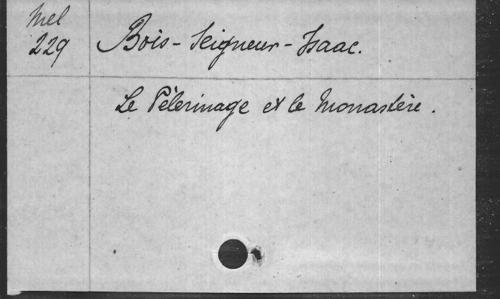 Mel
229
Bois-Seigneur-Isaac.
Le Pèlerinage et le Monastère.